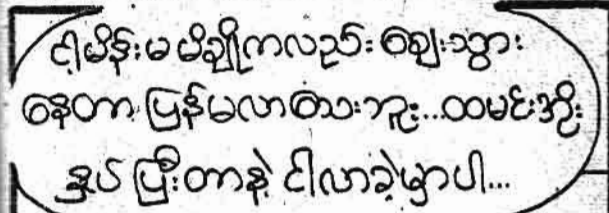 ငါ့မိန်းမ မိချိုကလည်း ဈေးသွား
နေတာ ပြန်မလာသေးဘူး...ထမင်းအိုး
နှပ်ပြီးတာနဲ့ ငါလာခဲ့မှာပါ...